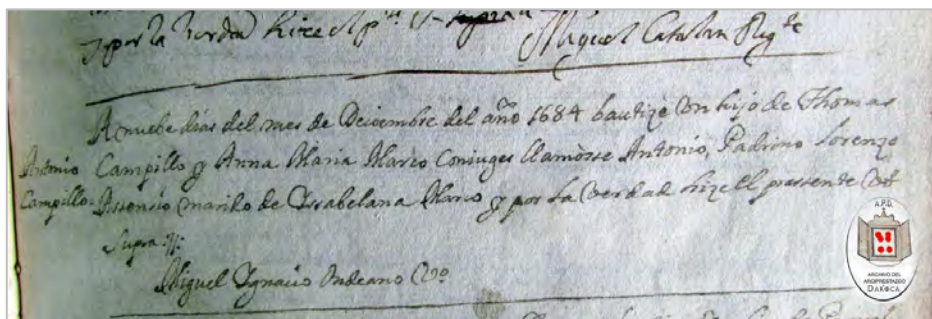 y por la verdad hice el pnte ut supra
Miguel Catalan Regte
A nuebe dias del mes de Deciembre del año 1684 bautizè Un hijo de Thomas
Antonio Campillo y Anna Maria Marco Coniuges llamòsse Antonio, Padrino Lorenzo
Campillo Assensio marido de Issabelana Marco y por la Verdad hize el pressente Vt
Supra
Miguel Ygnacio Vo
A.P.D.
ARCHIVO DEL
ARCIPRESTAZGO
DAROCA